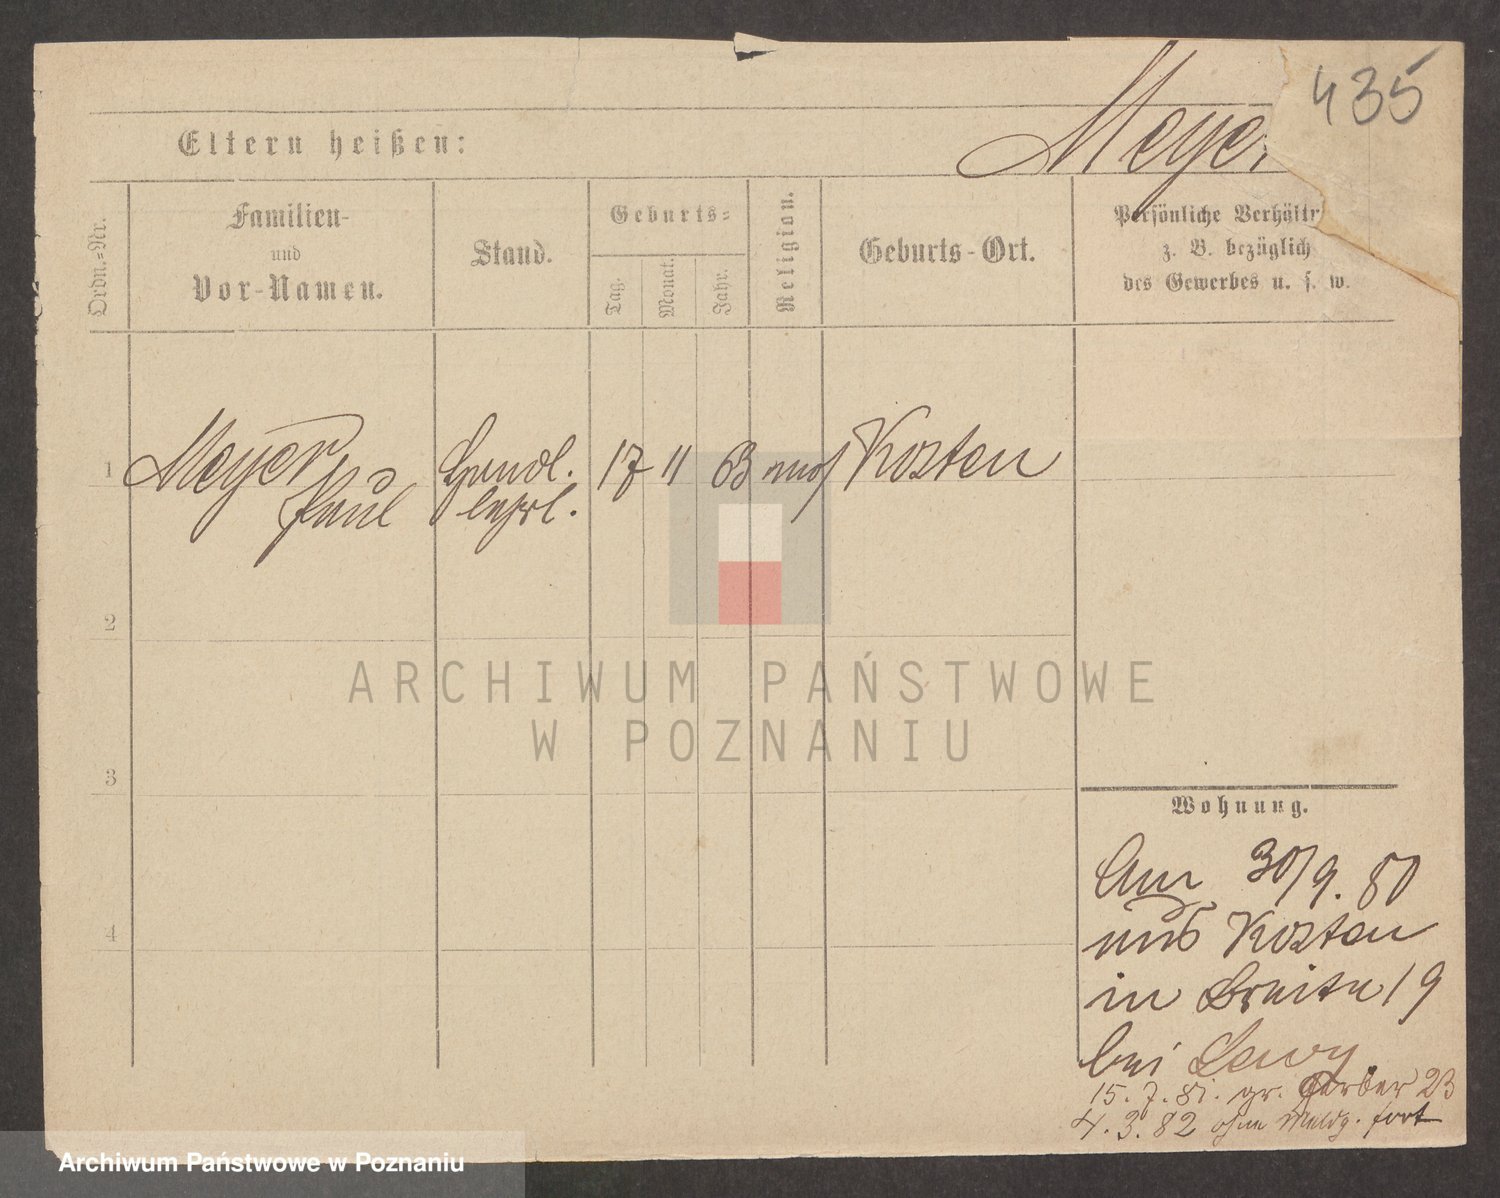 435
Eltern heißen:
Meyer
Ordn.-Nr.
Familien-
und
Vor-Namen.
Stand.
Geburts-
Tag.
Monat.
Jahr.
Religion.
Geburts-Ort.
Persönliche Verhältn
z. B. bezüglich
des Gewerbes u. s. w.
1 Meyer Handl. 17 11 63 mos Kosten
Paul lehrl.
2
3
4
Wohnung.
30/9. 80
aus Kosten
in Breite 19
bei Lewy
15. 7. 81. gr. Gerber 23
4. 3. 82 ohne Meldg. fort
ARCHIWUM PAŃSTWOWE
W POZNANIU
Archiwum Państwowe w Poznaniu